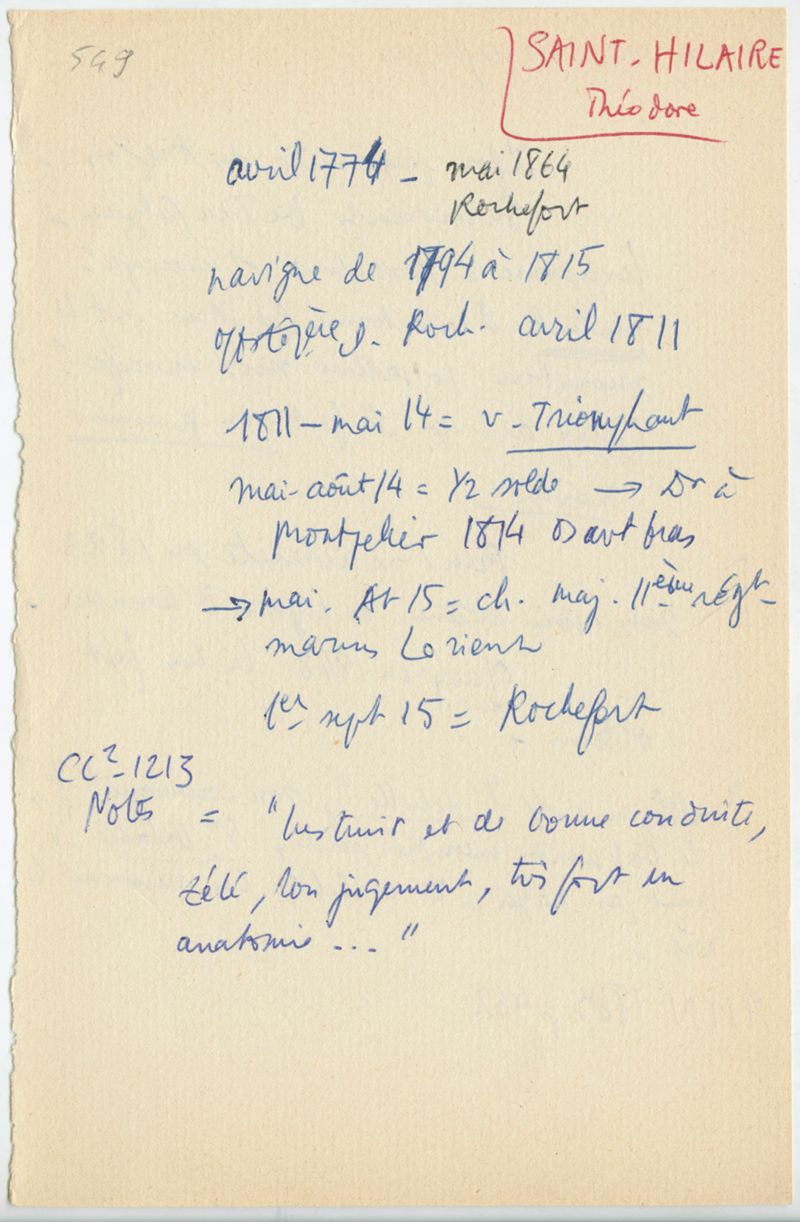 549
SAINT-HILAIRE
Théodore
avril 1774 - mai 1864
Rochefort
navigue de 1794 à 1815
Roch. avril 1811
1811 - mai 14 = v. Triomphant
mai-août 14 = 1/2 solde → Dr à
Montpelier 1814 Os avt bras
→ mai. At 15 = ch. maj. 11ème régt
marins Lorient
1er sept 15 = Rochefort
CC2-1213
Notes = "Instruit et de bonne conduite,
zélé, bon jugement, très fort en
anatomie ... "